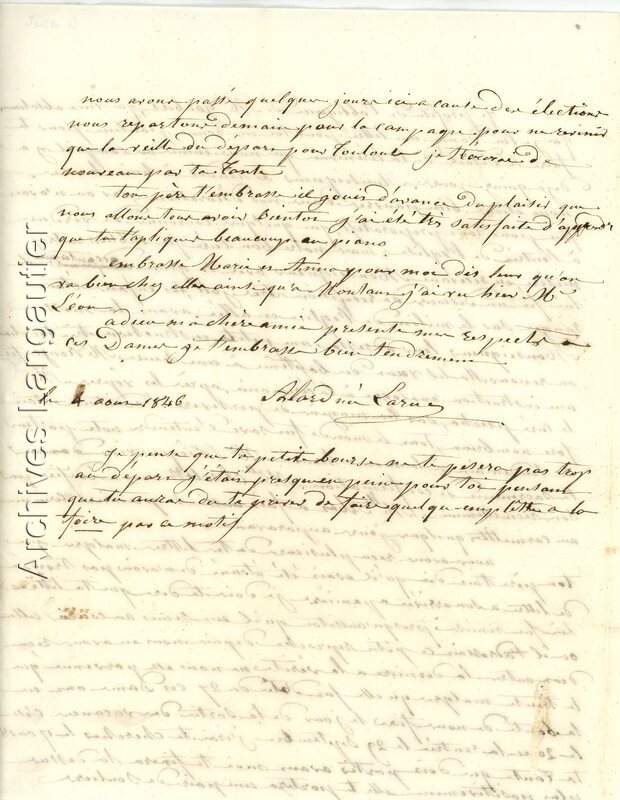 nous avons passé quelques jours ici a cause des élections
nous repartons demain pour la campagne pour ne revenir
que la veille du depart pour Toulouse je t'écrirai de
nouveau par ta tante
ton père t'embrasse il jouis d'avance du plaisir que
nous allons tous avoir bientot j'ai été très satisfaite d'apprendre
que tu t'apliques beaucoup au piano
embrasse Marie et Anna pour moi dis leur qu'on
va bien chez elles ainsi qu'a Montans j'ai vu hier Mr
Léon
adieu ma chère amie presente mes respects a
ces Dames je t'embrasse bien tendrement
le 4 aout 1846
Alard née Larue
Je pense que ta petite bourse ne te pesera pas trop
au départ j'étais presque en peine pour toi pensant
que tu aurais du te priver de faire quelqu'emplette a la
foire par ce motif
Archives Langautier